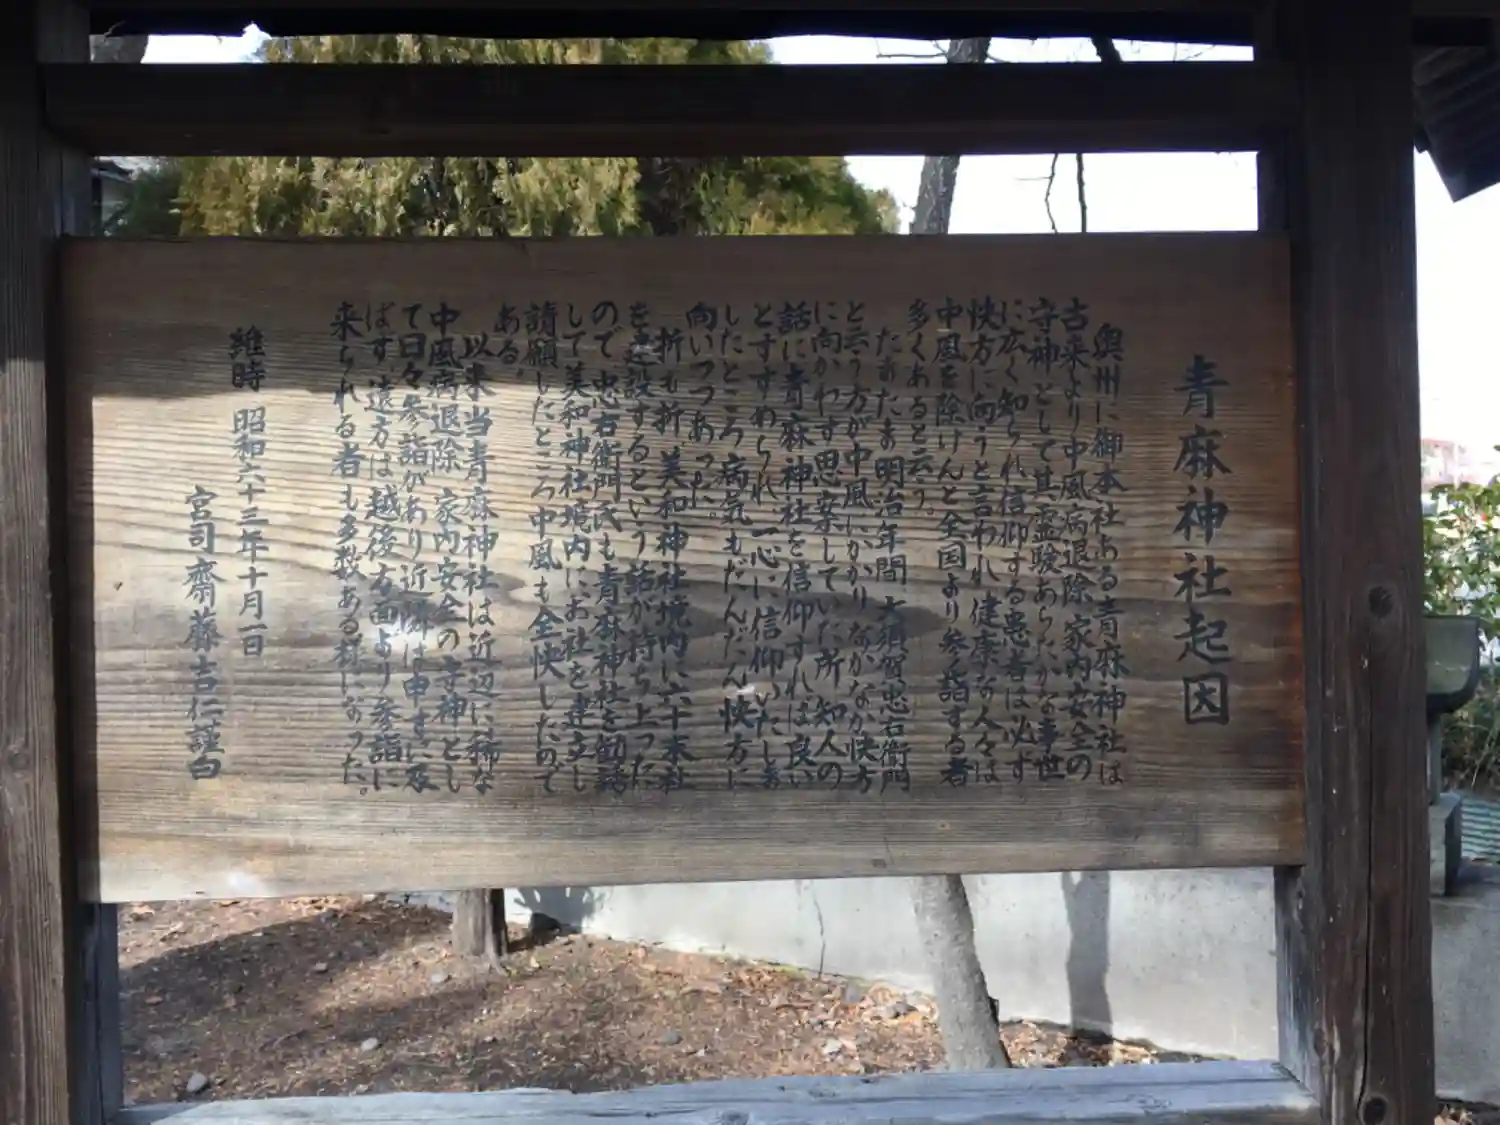 青麻神社起因
奥州に御本社ある青麻神社は
古来より中風病退除家内安全の
守神として其霊験あらたかな事世
に広く知られ信仰する患者は必ず
快方に向うと言われ健康な人々は
中風を除けんと全国より参詣する者
多くあると云う。
たまたま明治年間大須賀忠右衛門
と云う方が中風にかかりなかなか快方
に向かわず思案していた所知人の
話に青麻神社を信仰すれば良い
とすすめられ一心に信仰いたしま
したところ病気もだんだん快方に
向いつつあった。
折も折、美和神社境内に六十末社
を建設するという話が持ち上った
ので忠右衛門氏も青麻神社を勧請
して美和神社境内にお社を建立し
請願したところ中風も全快したので
ある。
以来当青麻神社は近辺に稀な
中風病退除家内安全の守神とし
て日々参詣があり近隣は申すに及
ばず遠方は越後方面より参詣に
来られる者も多数ある様になった。
維時 昭和六十三年十月一日
宮司齋藤吉仁謹白